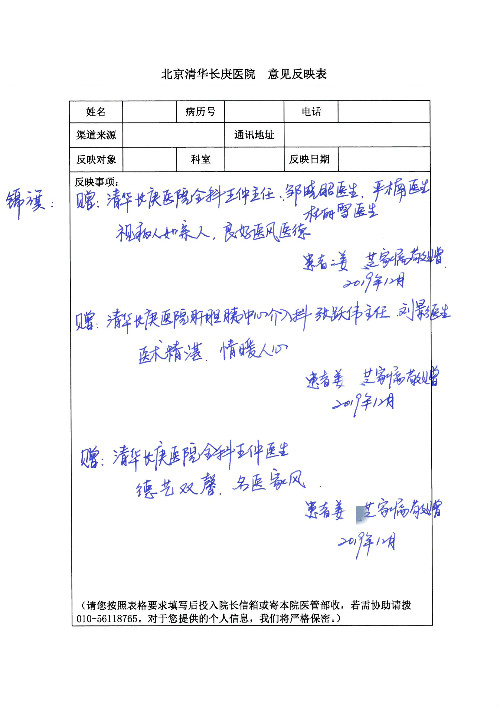 北京清华长庚医院 意见反映表
姓名 病历号 电话
渠道来源 通讯地址
反映对象 科室 反映日期
反映事项:
锦旗: 赠: 清华长庚医院全科王仲主任、邹晓昭医生、平楠医生
杜雨雪医生
视病人如亲人, 良好医风医德
患者姜 芝家属敬赠
2019年12月
赠: 清华长庚医院肝胆胰中心介入科 张跃伟主任 刘影医生
医术精湛, 情暖人心
患者姜 芝家属敬赠
2019年12月
赠: 清华长庚医院全科王仲医生
德艺双馨, 名医家风.
患者姜 芝家属敬赠
2019年12月
(请您按照表格要求填写后投入院长信箱或寄本院医管部收,若需协助请拨
010-56118765,对于您提供的个人信息,我们将严格保密。)